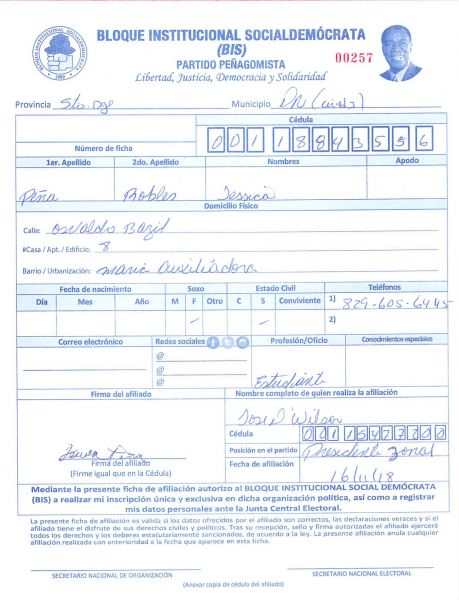 BLOQUE INSTITUCIONAL SOCIALDEMÓCRATA
(BIS)
PARTIDO PEÑAGOMISTA
00257
Libertad, Justicia, Democracia y Solidaridad
BLOQUE INSTITUCIONAL SOCIALDEMOCRATA
Provincia Sto. Dgo Municipio DN
Cédula
Número de ficha 001 1884355 6
1er. Apellido 2do. Apellido Nombres Apodo
Peña Robles Jessica
Domicilio Físico
Calle: Osvaldo Bazil
#Casa / Apt. / Edificio: 8
Barrio / Urbanización: Maria Auxiliadora
Fecha de nacimiento Sexo Estado Civil Teléfonos
Día Mes Año M F Otro C S Conviviente 1) 829-605-6445
2)
Correo electrónico Redes sociales Profesión/Oficio Conocimientos especiales
@
@
@
Estudiante
Firma del afiliado Nombre completo de quien realiza la afiliación
Jose D Wilson
Cédula
Firma del afiliado
(Firme igual que en la Cédula)
Posición en el partido Presidente Zonal
Fecha de afiliación 16/11/18
Mediante la presente ficha de afiliación autorizo al BLOQUE INSTITUCIONAL SOCIAL DEMÓCRATA
(BIS) a realizar mi inscripción única y exclusiva en dicha organización política, así como a registrar
mis datos personales ante la Junta Central Electoral.
La presente ficha de afiliación es válida si los datos ofrecidos por el afiliado son correctos, las declaraciones veraces y si el
afiliado tiene el disfrute de sus derechos civiles y políticos. Tras su recepción, sello y firma autorizadas el afiliado ejercerá
todos los derechos y los deberes estatutariamente sancionados, de acuerdo a la ley. La presente afiliación anula cualquier
afiliación realizada con anterioridad a la fecha que aparece en esta ficha.
SECRETARIO NACIONAL DE ORGANIZACIÓN SECRETARIO NACIONAL ELECTORAL
(Anexar copia de cédula del afiliado)